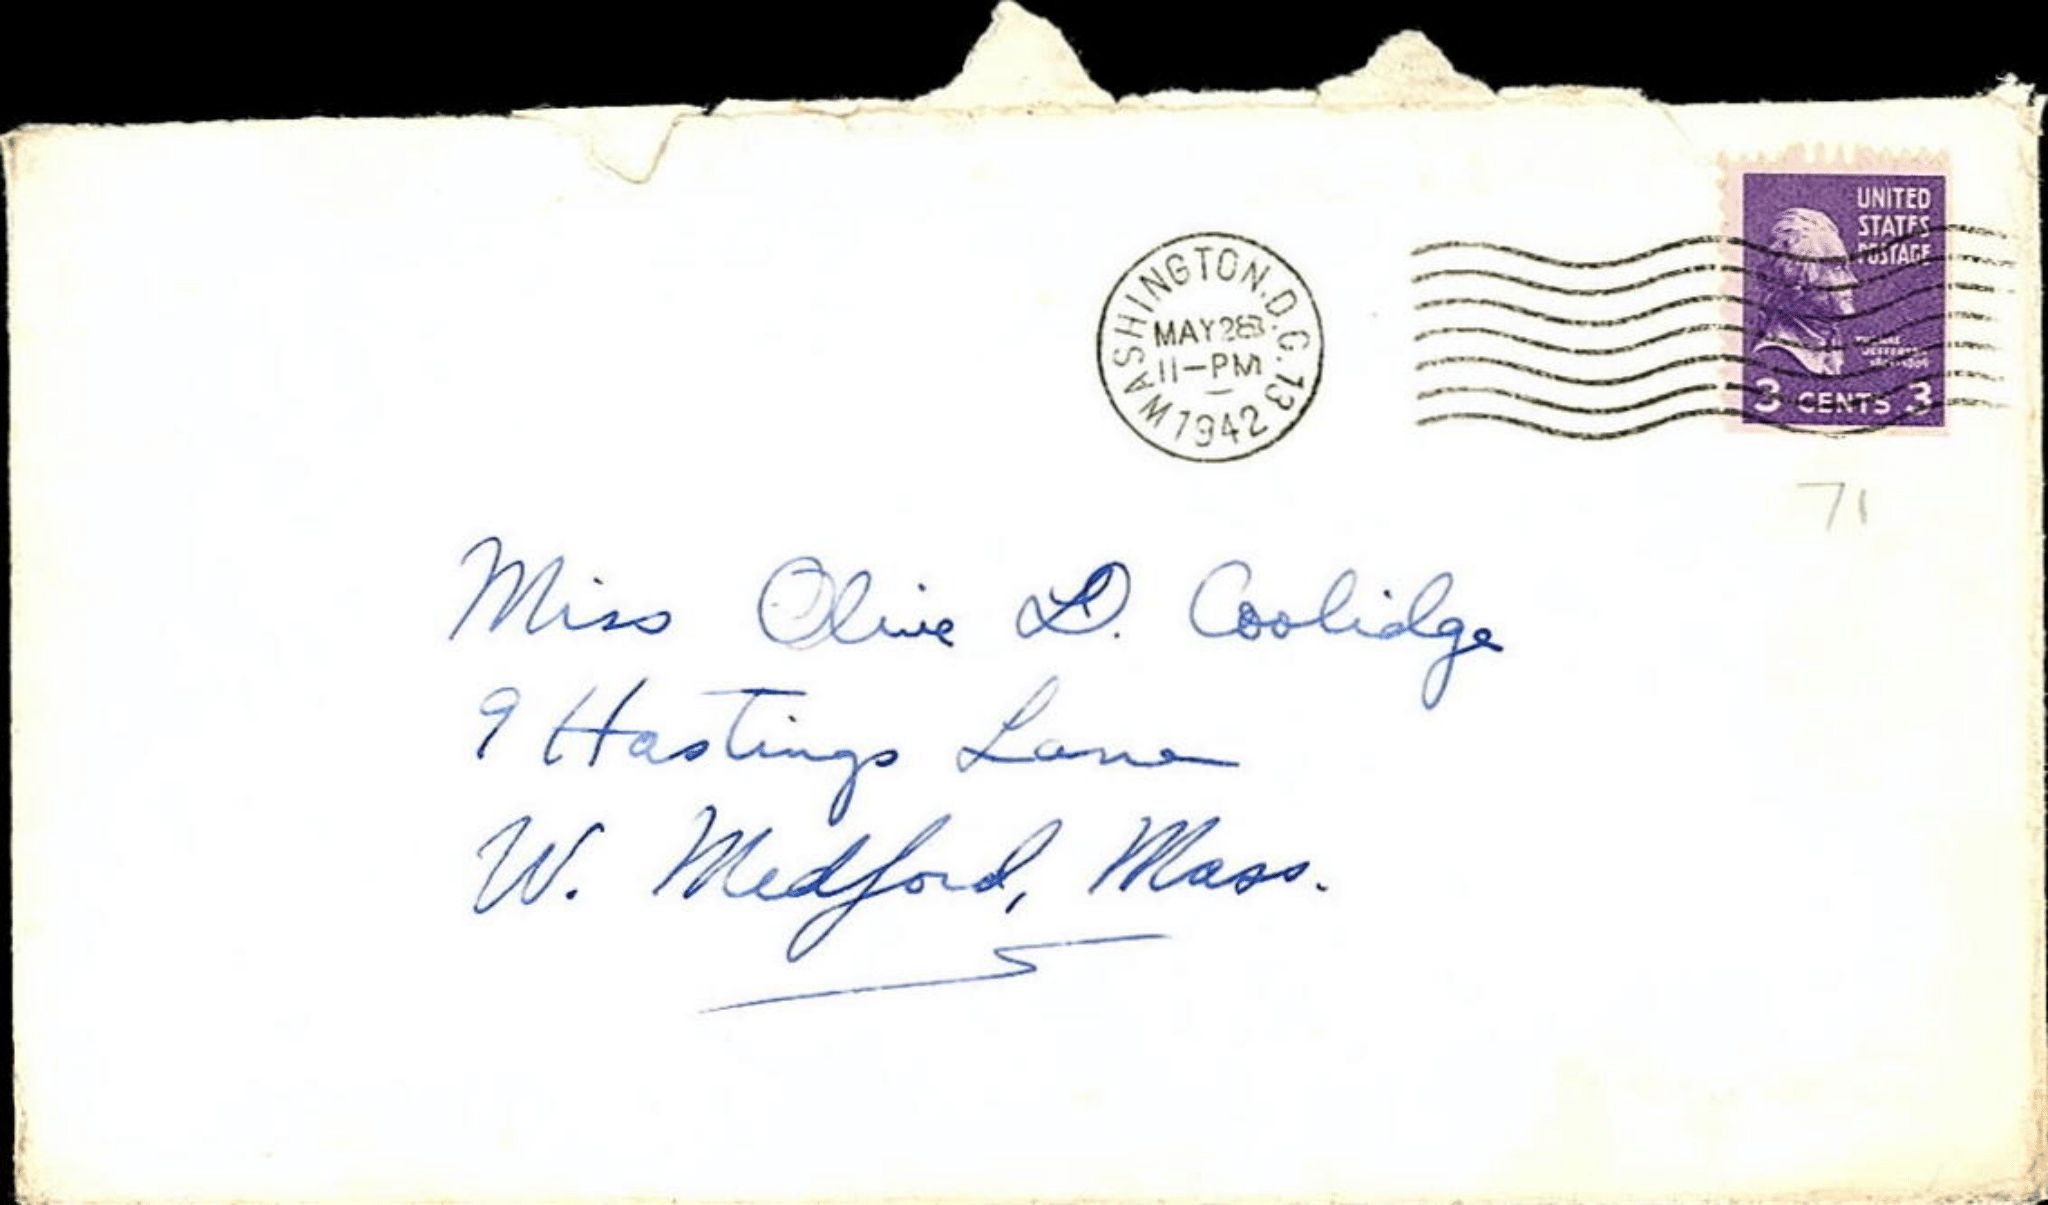 UNITED
STATES
POSTAGE
WASHINGTON, D.C. 13
MAY 28
11-PM
1942
JEFFERSON
3 CENTS 3
71
Miss Olive D. Coolidge
9 Hastings Lane
W. Medford, Mass.